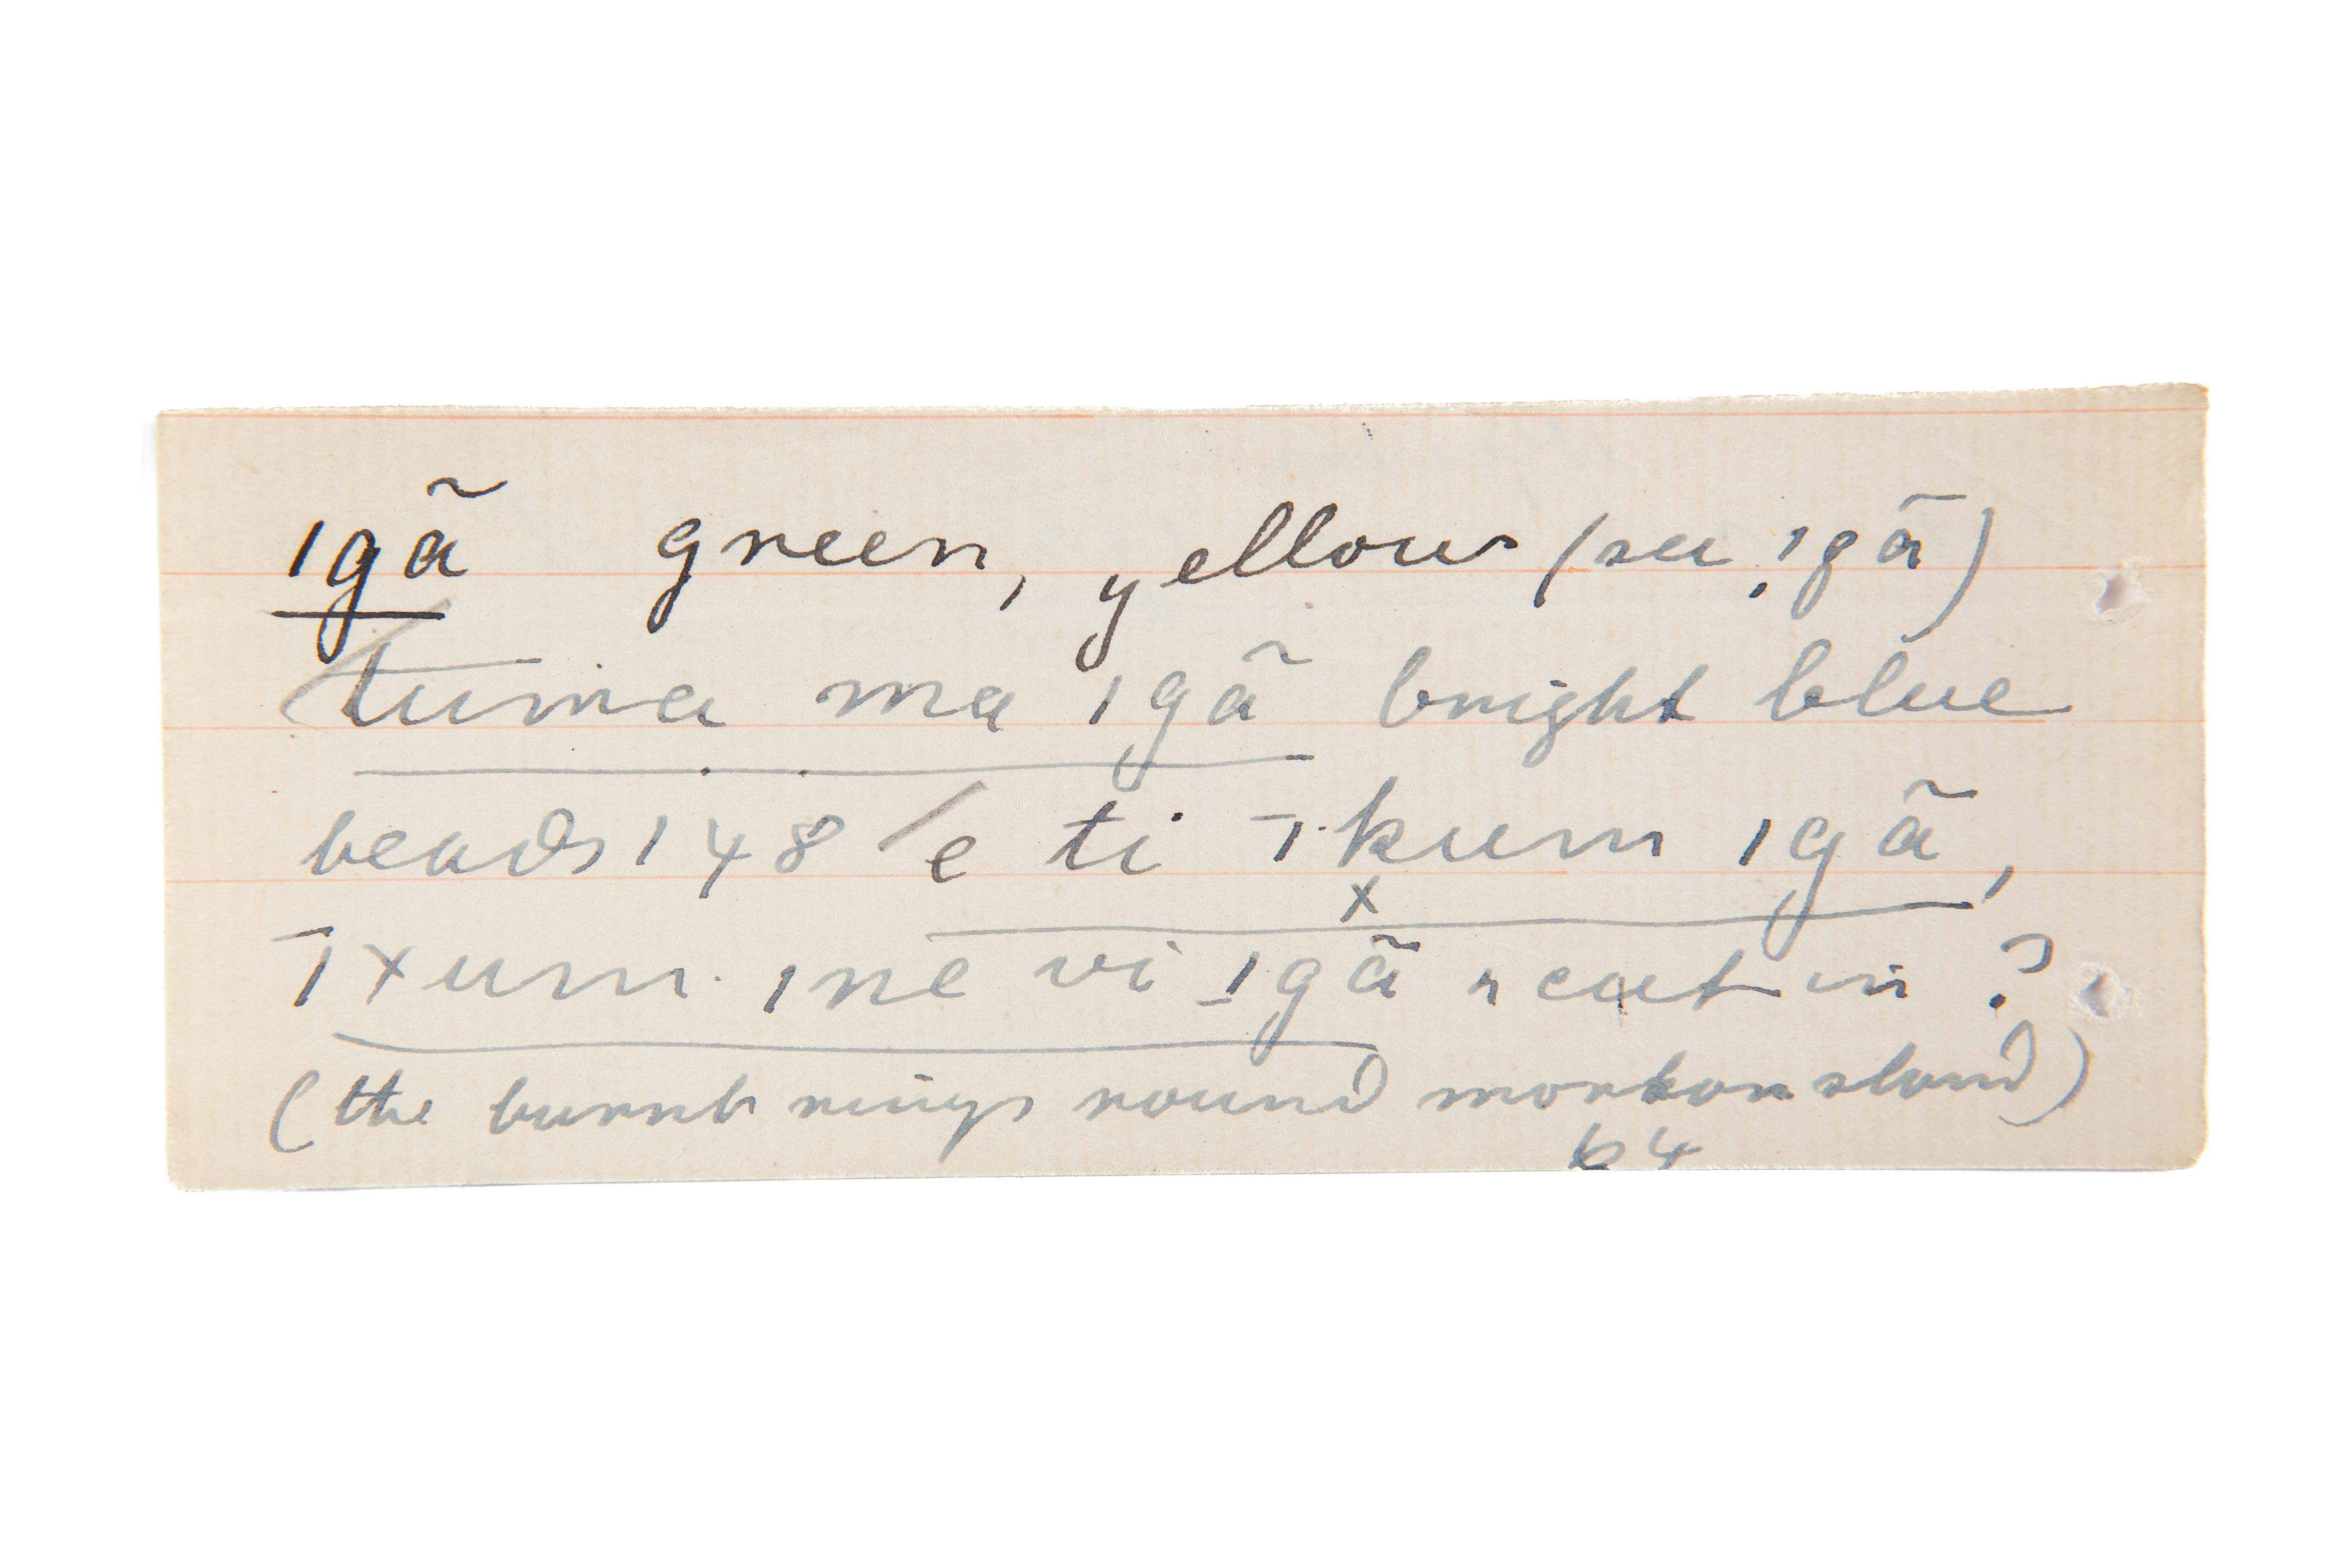 ıgã green, yellow (see ,ıgã)
tuma ma ıgã bright blue
beads 148 / e ti ˉı kum ıgã,
x
ˉı xum ıne vi ıgã neat in ?
(the burnt rings round morkon stand)
64